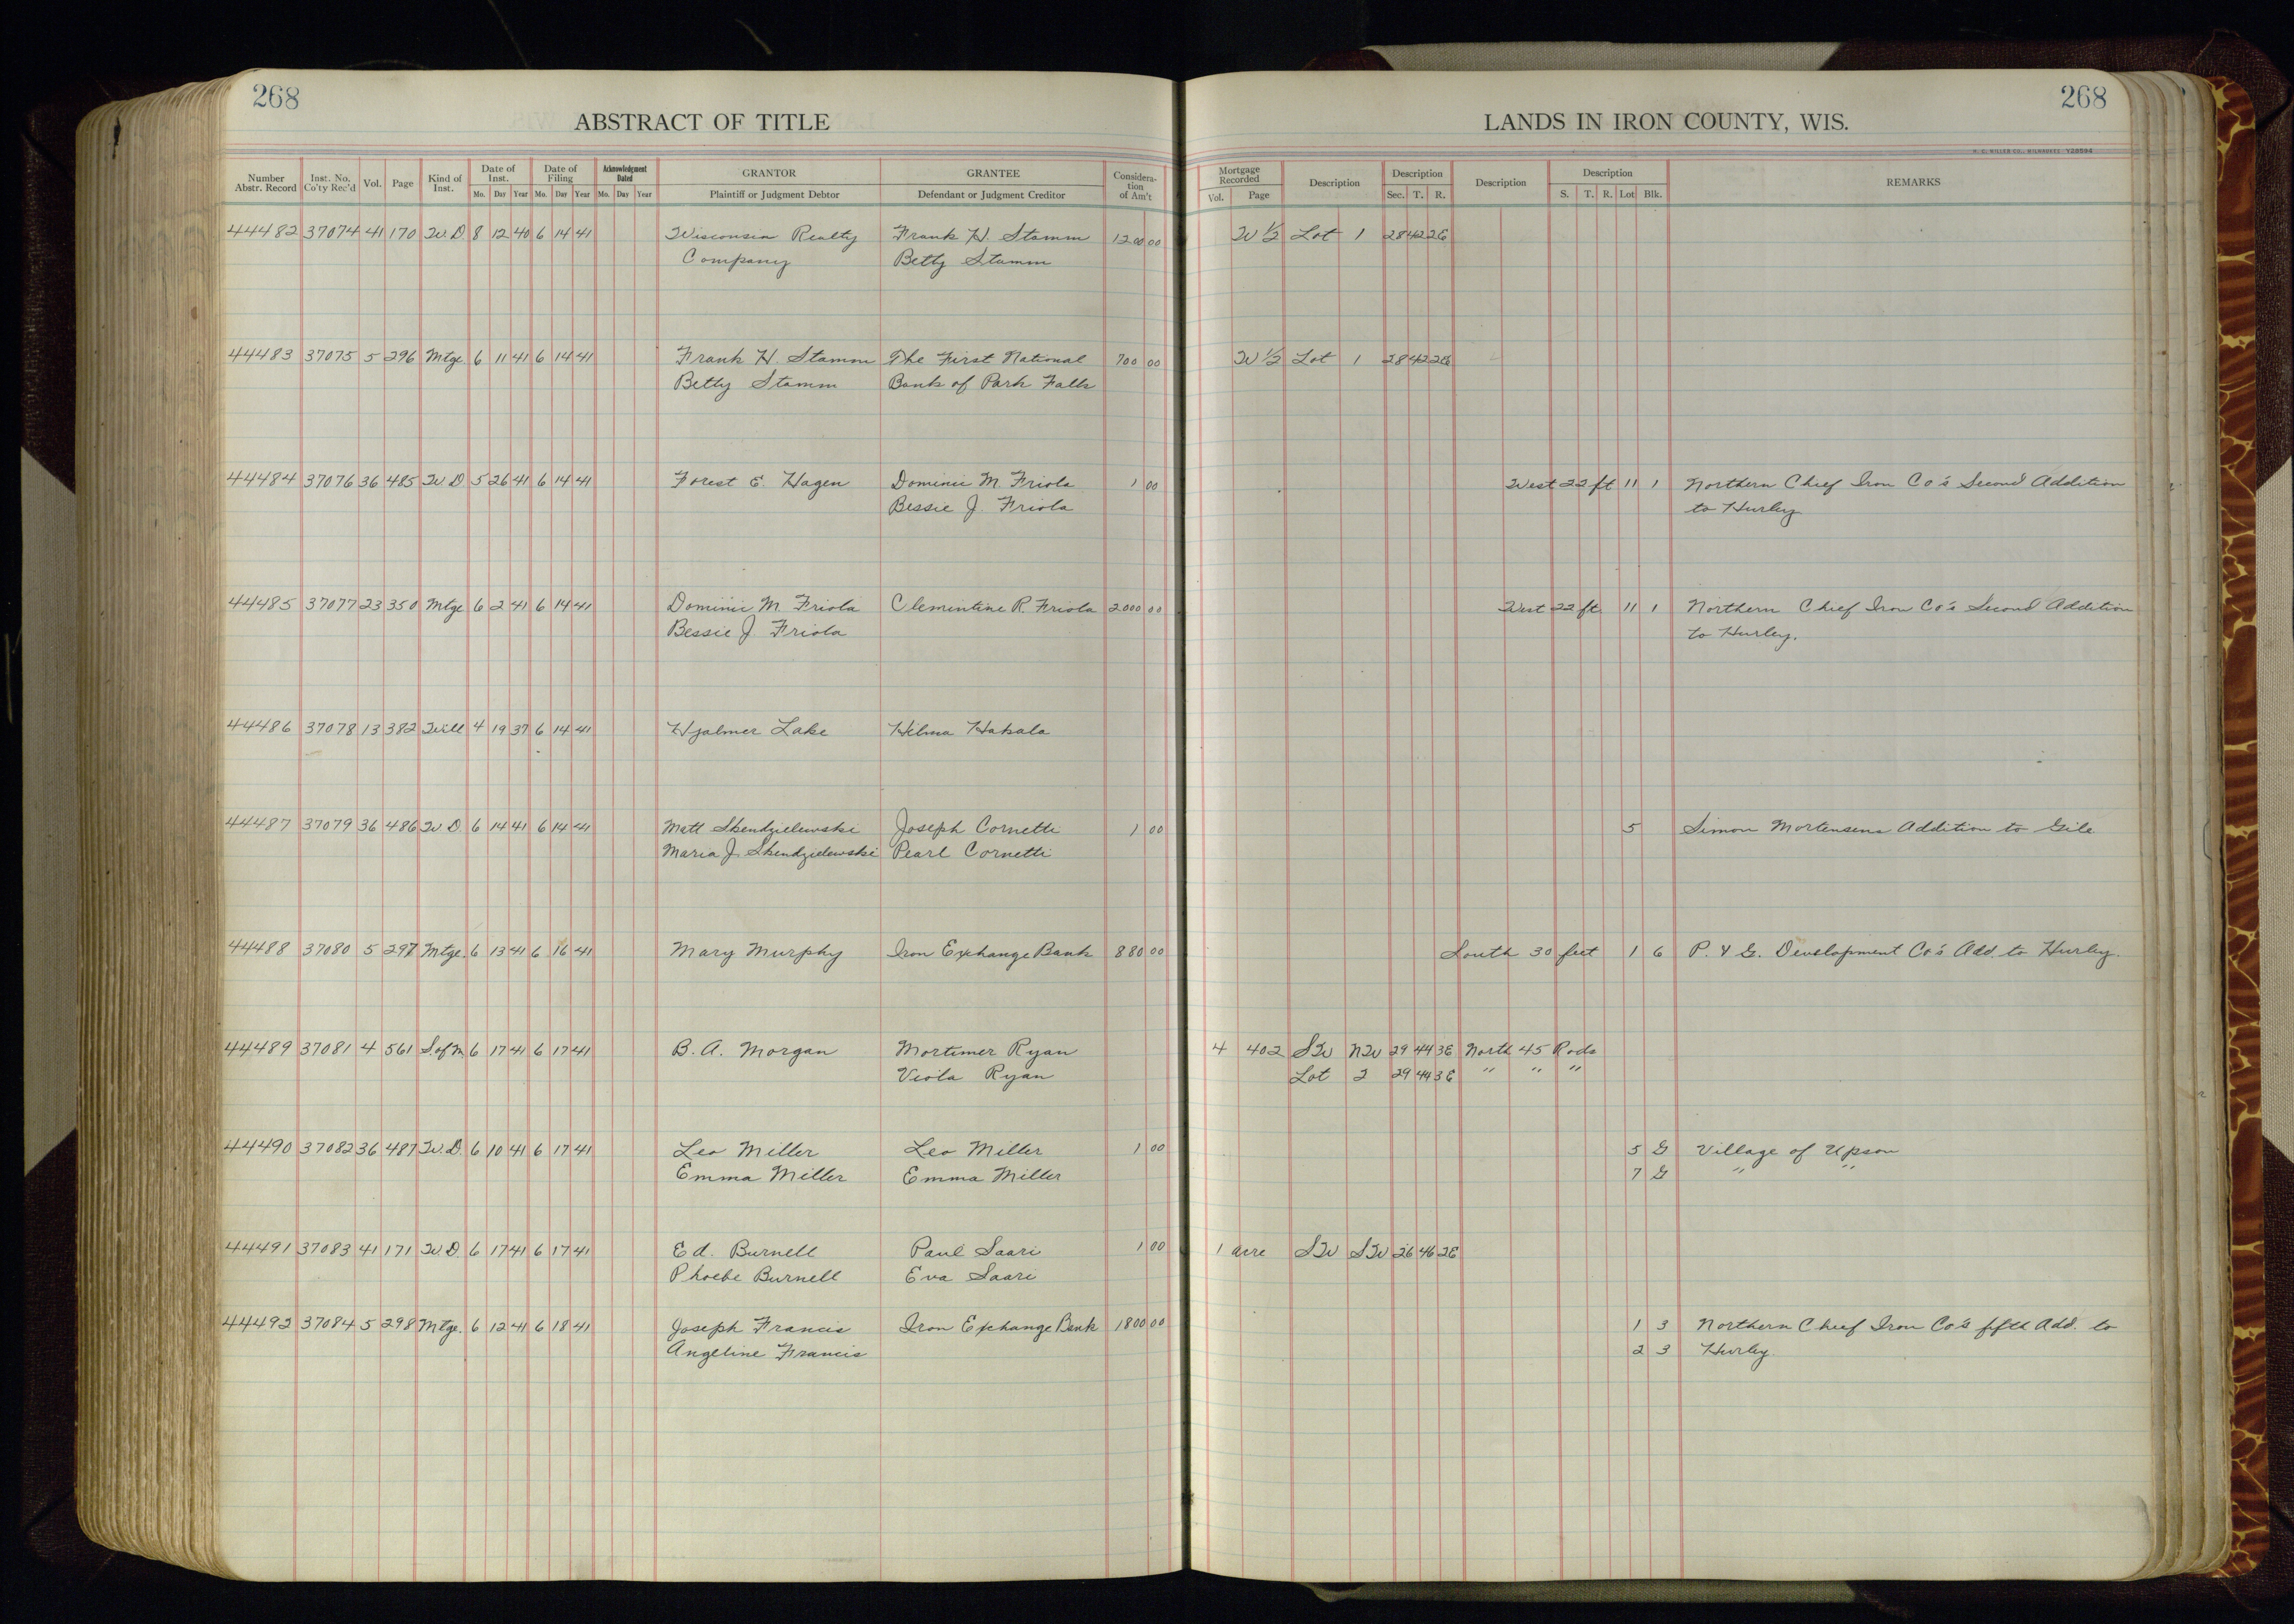 268
ABSTRACT OF TITLE
Number Abstr. Record Inst. No. Co'ty Rec'd Vol. Page Kind of Inst. Date of Inst. Mo. Day Year Date of Filing Mo. Day Year Acknowledgment Dated Mo. Day Year GRANTOR Plaintiff or Judgment Debtor GRANTEE Defendant or Judgment Creditor Considera-tion of Am't
44482 37074 41 170 W.D 8 12 40 6 14 41 Wisconsin Realty Frank H. Stamm 1200 00
Company Betty Stamm
44483 37075 5 296 Mtge 6 11 41 6 14 41 Frank H. Stamm The First National 700 00
Betty Stamm Bank of Park Falls
44484 37076 36 485 W.D 5 26 41 6 14 41 Forest E. Hagen Dominic M. Friola 1 00
Bessie J. Friola
44485 37077 23 350 Mtge 6 2 41 6 14 41 Dominic M. Friola Clemintine R. Friola 2000 00
Bessie J. Friola
44486 37078 13 382 Will 4 19 37 6 14 41 Hjalmer Lake Hilma Hakala
44487 37079 36 486 W.D. 6 14 41 6 14 41 Matt Skendzielewski Joseph Cornetti 1 00
Maria J. Skendzielewski Pearl Cornetti
44488 37080 5 297 Mtge. 6 13 41 6 16 41 Mary Murphy Iron Exchange Bank 880 00
44489 37081 4 561 S.of M. 6 17 41 6 17 41 B. A. Morgan Mortimer Ryan
Viola Ryan
44490 37082 36 487 W.D. 6 10 41 6 17 41 Leo Miller Leo Miller 1 00
Emma Miller Emma Miller
44491 37083 41 171 W.D. 6 17 41 6 17 41 Ed. Burnell Paul Saari 1 00
Phoebe Burnell Eva Saari
44492 37084 5 298 Mtge. 6 12 41 6 18 41 Joseph Francis Iron Exchange Bank 1800 00
Angeline Francis
268
LANDS IN IRON COUNTY, WIS.
H. C. MILLER CO., MILWAUKEE
Mortgage Recorded Vol. Page Description Description Sec. T. R. Description Description S. T. R. Lot Blk. REMARKS
W 1/2 Lot 1 28 42 2E
W 1/2 Lot 1 28 42 2E
West 22 ft 11 1 Northern Chief Iron Co's Second Addition
to Hurley
West 22 ft 11 1 Northern Chief Iron Co's Second Addition
to Hurley.
5 Simon Mortensens Addition to Gile
South 30 feet 1 6 P. & G. Development Co's Add. to Hurley.
4 402 SW NW 29 44 3E North 45 Rods
Lot 2 29 44 3E " " "
5 G Village of Upson
7 G " "
1 acre SW SW 26 46 2E
1 3 Northern Chief Iron Co's fifth Add. to
2 3 Hurley.